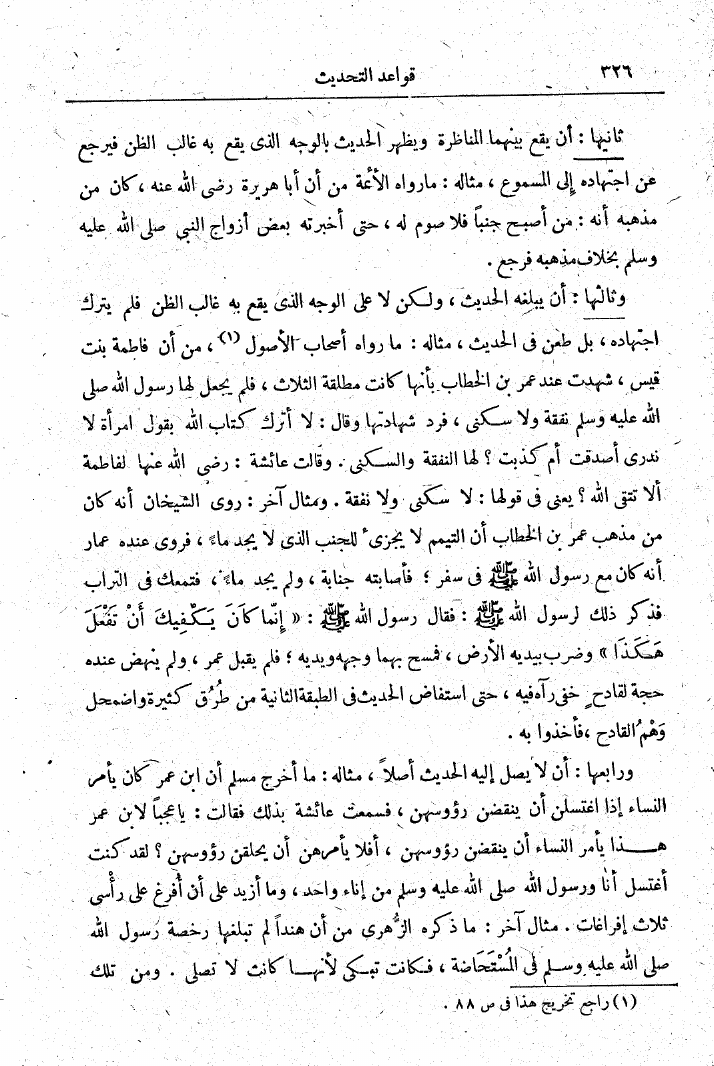 ٣٢٦
قواعد التحديث
ثانيها : أن يقع بينهما المناظرة ويظهر الحديث بالوجه الذى يقع به غالب الظن فيرجع
عن اجتهاده إلى المسموع ، مثاله : مارواه الأئمة من أن أبا هريرة رضى الله عنه ، كان من
مذهبه أنه : من أصبح جنباً فلا صوم له ، حتى أخبرته بعض أزواج النبي صلى الله عليه
وسلم بخلاف مذهبه فرجع .
وثالثها : أن يبلغه الحديث ، ولكن لا على الوجه الذى يقع به غالب الظن فلم يترك
اجتهاده ، بل طعن فى الحديث ، مثاله : ما رواه أصحاب الأصول (١) ، من أن فاطمة بنت
قيس ، شهدت عند عمر بن الخطاب بأنها كانت مطلقة الثلاث ، فلم يجعل لها رسول الله صلى
الله عليه وسلم نفقة ولا سكنى ، فرد شهادتها وقال : لا أترك كتاب الله بقول امرأة لا
ندرى أصدقت أم كذبت ؟ لها النفقة والسكنى . وقالت عائشة : رضى الله عنها لفاطمة
ألا تتقى الله ؟ يعنى فى قولها : لا سكنى ولا نفقة . ومثال آخر : روى الشيخان أنه كان
من مذهب عمر بن الخطاب أن التيمم لا يجزئ للجنب الذى لا يجد ماءً ، فروى عنده عمار
أنه كان مع رسول الله ﷺ فى سفر ؛ فأصابته جنابة ، ولم يجد ماءً ، فتمعك فى التراب
فذكر ذلك لرسول الله ﷺ : فقال رسول الله ﷺ : « إِنَّما كَانَ يَكْفِيكَ أَنْ تَفْعَلَ
هَكَذَا » وضرب بيديه الأرض ، فمسح بهما وجهه ويديه ؛ فلم يقبل عمر ، ولم ينهض عنده
حجة لقادح خفى رآه فيه ، حتى استفاض الحديث فى الطبقة الثانية من طُرُق كثيرة واضمحل
وَهْمُ القادح ، فأخذوا به .
ورابعها : أن لا يصل إليه الحديث أصلاً ، مثاله : ما أخرج مسلم أن ابن عمر كان يأمر
النساء إذا اغتسلن أن ينقضن رؤوسهن ، فسمعت عائشة بذلك فقالت : ياعجباً لابن عمر
هذا يأمر النساء أن ينقضن رؤوسهن ، أفلا يأمرهن أن يحلقن رؤوسهن ؟ لقد كنت
أغتسل أنا ورسول الله صلى الله عليه وسلم من إناء واحد ، وما أزيد على أن أُفرغ على رأْسى
ثلاث إفراغات . مثال آخر : ما ذكره الزُّهرى من أن هنداً لم تبلغها رخصة رسول الله
صلى الله عليه وسلم فى الُمسْتَحَاضة ، فكانت تبكى لأنها كانت لا تصلى . ومن تلك
(١) راجع تخريج هذا فى ص ٨٨ .